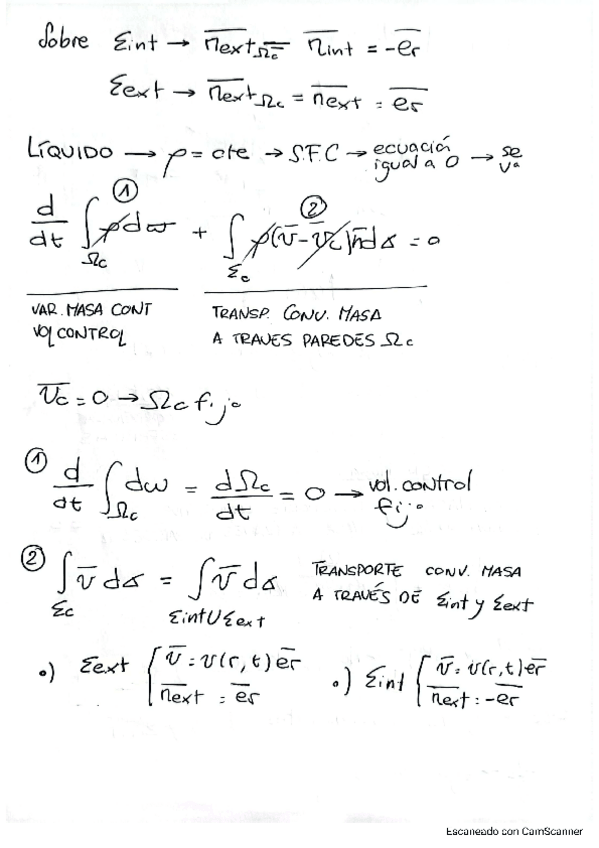 Sobre Σint → n̅ext_Ωc = n̅int = -e̅r
Σext → n̅ext_Ωc = n̅ext = e̅r
LÍQUIDO → ρ = cte → S.F.C → ecuación igual a 0 → se va
① ②
d/dt ∫_Ωc ρdω + ∫_Σc ρ(v̅ - v̅c)n̅dσ = 0
VAR. MASA CONT TRANSP. CONV. MASA
VOL CONTROL A TRAVES PAREDES Ωc
v̅c = 0 → Ωc fijo
① d/dt ∫_Ωc dω = dΩc/dt = 0 → vol. control fijo
② ∫_Σc v̅ dσ = ∫_ΣintUΣext v̅ dσ TRANSPORTE CONV. MASA
A TRAVÉS DE Σint y Σext
•) Σext { v̅ = v(r,t) e̅r •) Σint { v̅ = v(r,t) e̅r
n̅ext = e̅r n̅ext = -e̅r
Escaneado con CamScanner